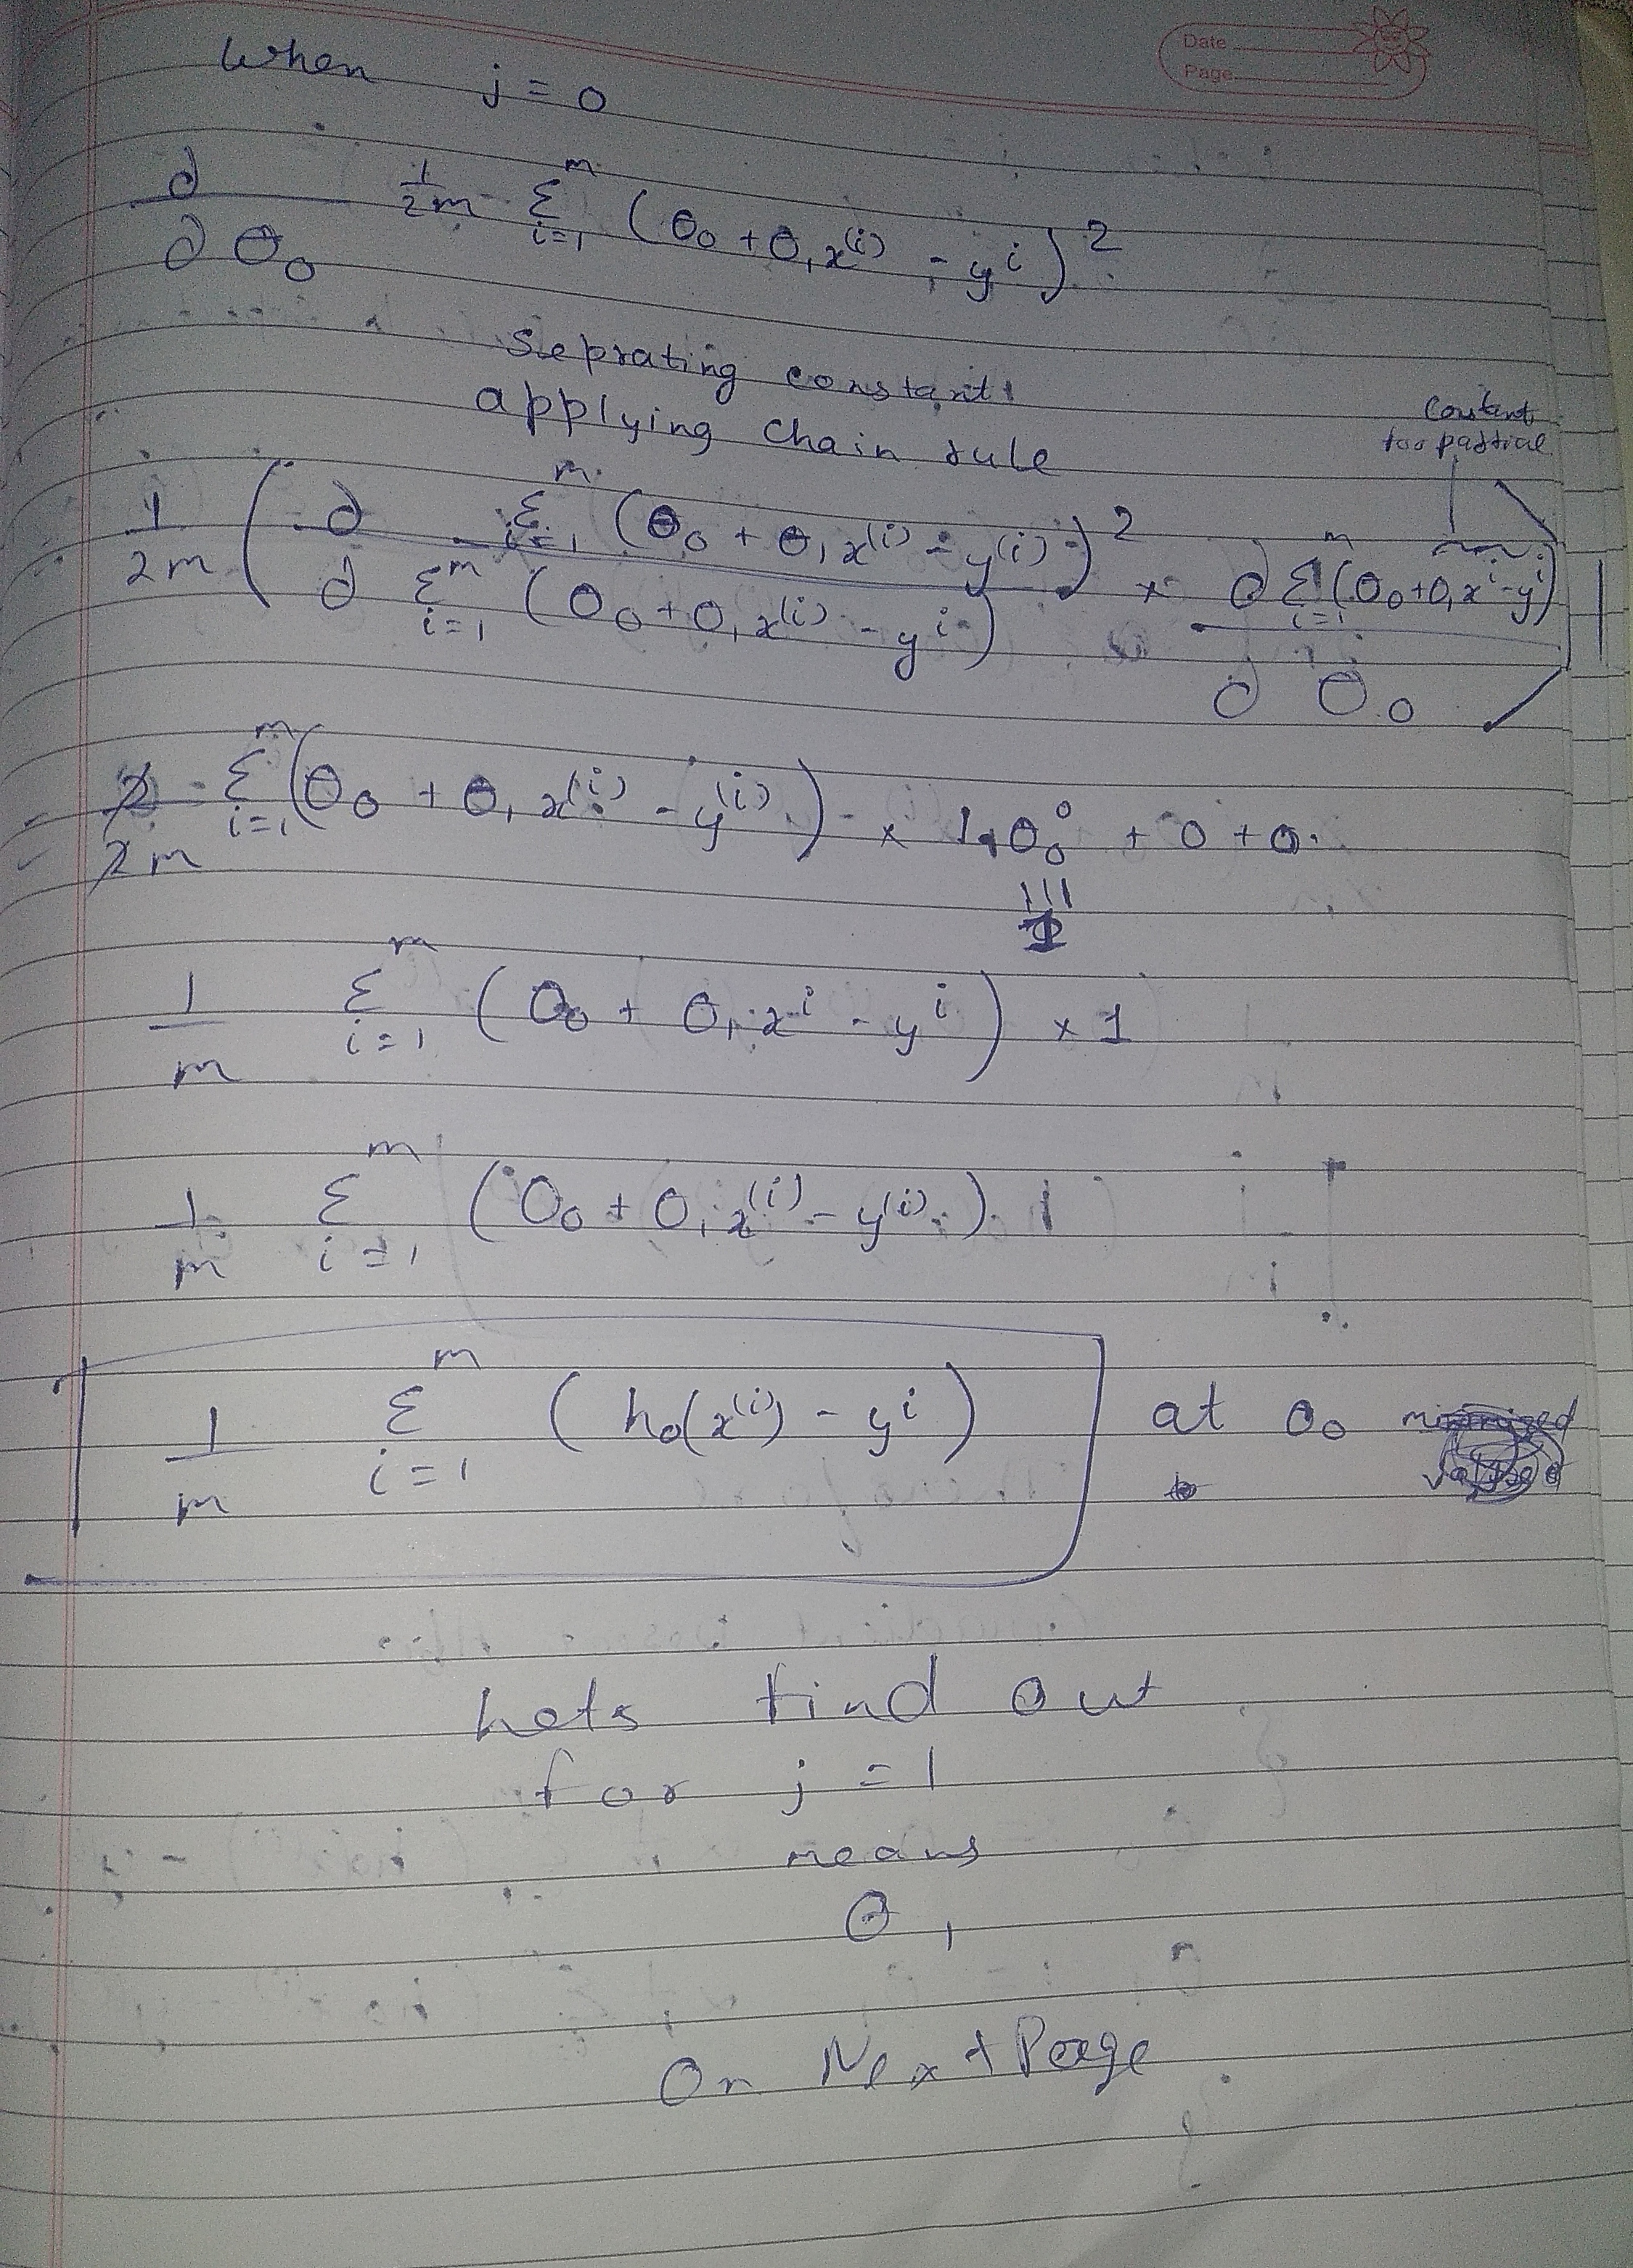 Date
Page
When j = 0
∂/∂θ₀ 1/2m Σᵢ₌₁ᵐ (θ₀ + θ₁x⁽ⁱ⁾ - yⁱ)²
Seprating constant
applying chain rule
Constant
for partial
1/2m ( ∂ Σᵢ₌₁ᵐ (θ₀ + θ₁x⁽ⁱ⁾ - y⁽ⁱ⁾)² / ∂ Σᵢ₌₁ᵐ (θ₀ + θ₁x⁽ⁱ⁾ - yⁱ) × ∂ Σᵢ₌₁ᵐ (θ₀ + θ₁xⁱ - yⁱ) / ∂θ₀ )
= 2/2m Σᵢ₌₁ᵐ (θ₀ + θ₁x⁽ⁱ⁾ - y⁽ⁱ⁾) × 1·θ₀⁰ + 0 + 0
1
1/m Σᵢ₌₁ᵐ (θ₀ + θ₁xⁱ - yⁱ) × 1
1/m Σᵢ₌₁ᵐ (θ₀ + θ₁x⁽ⁱ⁾ - y⁽ⁱ⁾) · 1
1/m Σᵢ₌₁ᵐ (hθ(x⁽ⁱ⁾) - yⁱ) at θ₀
Lets find out
for j = 1
means
θ₁
On Next Page